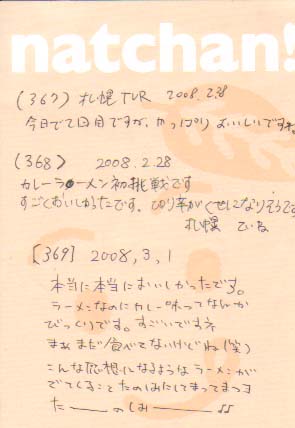 natchan!
(367) 札幌TVR 2008.2.28
今日で 回目ですが、かっぱり おいしいですね。
(368) 2008.2.28
カレーラーメン初挑戦です
すごくおいしかったです。ぴり辛がくせになりそうで
札幌
[369] 2008,3,1
本当に本当においしかったです。
ラーメンなのにカレー味ってなんか
びっくりです。すごいですネ
まぁまだ食べてないけどね(笑)
こんな感想になるようなラーメンが
でてくることたのしみにしてまってまつ
た――のしみ――♪♪